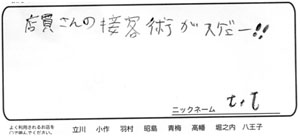 店員さんの接客術がスゲー!!
ニックネーム
よく利用されるお店を
立川 小作 羽村 昭島 青梅 高幡 堀之内 八王子